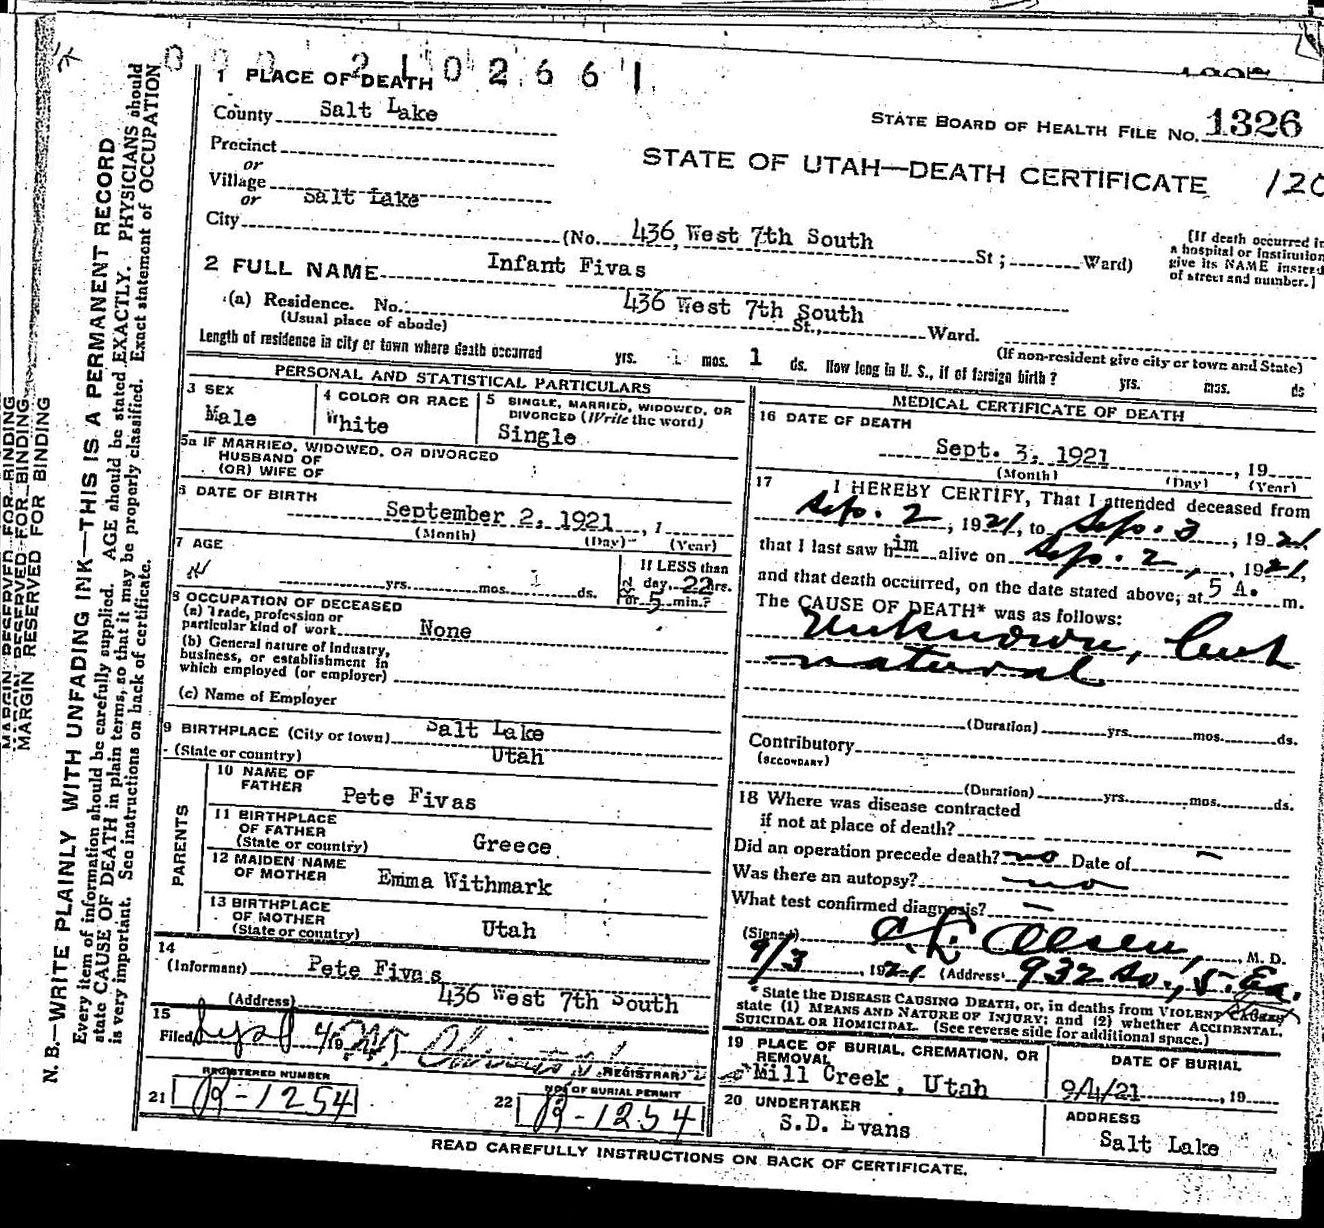 0 0 0 2 1 0 2 6 6 1
1 PLACE OF DEATH
County Salt Lake
STATE BOARD OF HEALTH FILE No. 1326
Precinct
or
STATE OF UTAH—DEATH CERTIFICATE 120
Village Salt Lake
or
City (No. 436 West 7th South St ; Ward)
[If death occurred in
a hospital or institution
give its NAME instead
of street and number.]
2 FULL NAME Infant Fivas
(a) Residence. No. 436 West 7th South St., Ward.
(Usual place of abode)
(If non-resident give city or town and State)
Length of residence in city or town where death occurred yrs. mos. 1 ds. How long in U. S., if of foreign birth? yrs. mos. ds
PERSONAL AND STATISTICAL PARTICULARS
3 SEX
Male
4 COLOR OR RACE
White
5 SINGLE, MARRIED, WIDOWED, OR
DIVORCED (Write the word)
Single
5a IF MARRIED, WIDOWED, OR DIVORCED
HUSBAND OF
(OR) WIFE OF
6 DATE OF BIRTH
September 2, 1921, 1
(Month) (Day) (Year)
7 AGE
yrs. mos. ds.
If LESS than
day, 22 hrs.
or 5 min.?
8 OCCUPATION OF DECEASED
(a) Trade, profession or
particular kind of work None
(b) General nature of industry,
business, or establishment in
which employed (or employer)
(c) Name of Employer
9 BIRTHPLACE (City or town) Salt Lake
(State or country) Utah
PARENTS
10 NAME OF
FATHER Pete Fivas
11 BIRTHPLACE
OF FATHER
(State or country) Greece
12 MAIDEN NAME
OF MOTHER Emma Withmark
13 BIRTHPLACE
OF MOTHER
(State or country) Utah
14
(Informant) Pete Fivas
(Address) 436 West 7th South
15
Filed REGISTRAR
REGISTERED NUMBER
21 19-1254
NO. OF BURIAL PERMIT
22 19-1254
MEDICAL CERTIFICATE OF DEATH
16 DATE OF DEATH
Sept. 3, 1921, 19
(Month) (Day) (Year)
17 I HEREBY CERTIFY, That I attended deceased from
Sep. 2, 1921, to Sep. 3, 1921,
that I last saw him alive on Sep. 2, 1921,
and that death occurred, on the date stated above, at 5 A. m.
The CAUSE OF DEATH* was as follows:
Unknown, but
natural
(Duration) yrs. mos. ds.
Contributory
(SECONDARY)
(Duration) yrs. mos. ds.
18 Where was disease contracted
if not at place of death?
Did an operation precede death? no Date of —
Was there an autopsy? no
What test confirmed diagnosis? —
(Signed) Olsen, M. D.
9/3, 1921 (Address) 932 So., 5. Ea.
* State the DISEASE CAUSING DEATH, or, in deaths from VIOLENT CAUSES
state (1) MEANS AND NATURE OF INJURY; and (2) whether ACCIDENTAL,
SUICIDAL OR HOMICIDAL. (See reverse side for additional space.)
19 PLACE OF BURIAL, CREMATION, OR
REMOVAL
Mill Creek, Utah
DATE OF BURIAL
9/4/21, 19
20 UNDERTAKER
S.D. Evans
ADDRESS
Salt Lake
READ CAREFULLY INSTRUCTIONS ON BACK OF CERTIFICATE.
MARGIN RESERVED FOR BINDING
N. B.—WRITE PLAINLY WITH UNFADING INK—THIS IS A PERMANENT RECORD
Every item of information should be carefully supplied. AGE should be stated EXACTLY. PHYSICIANS should
state CAUSE OF DEATH in plain terms, so that it may be properly classified. Exact statement of OCCUPATION
is very important. See instructions on back of certificate.